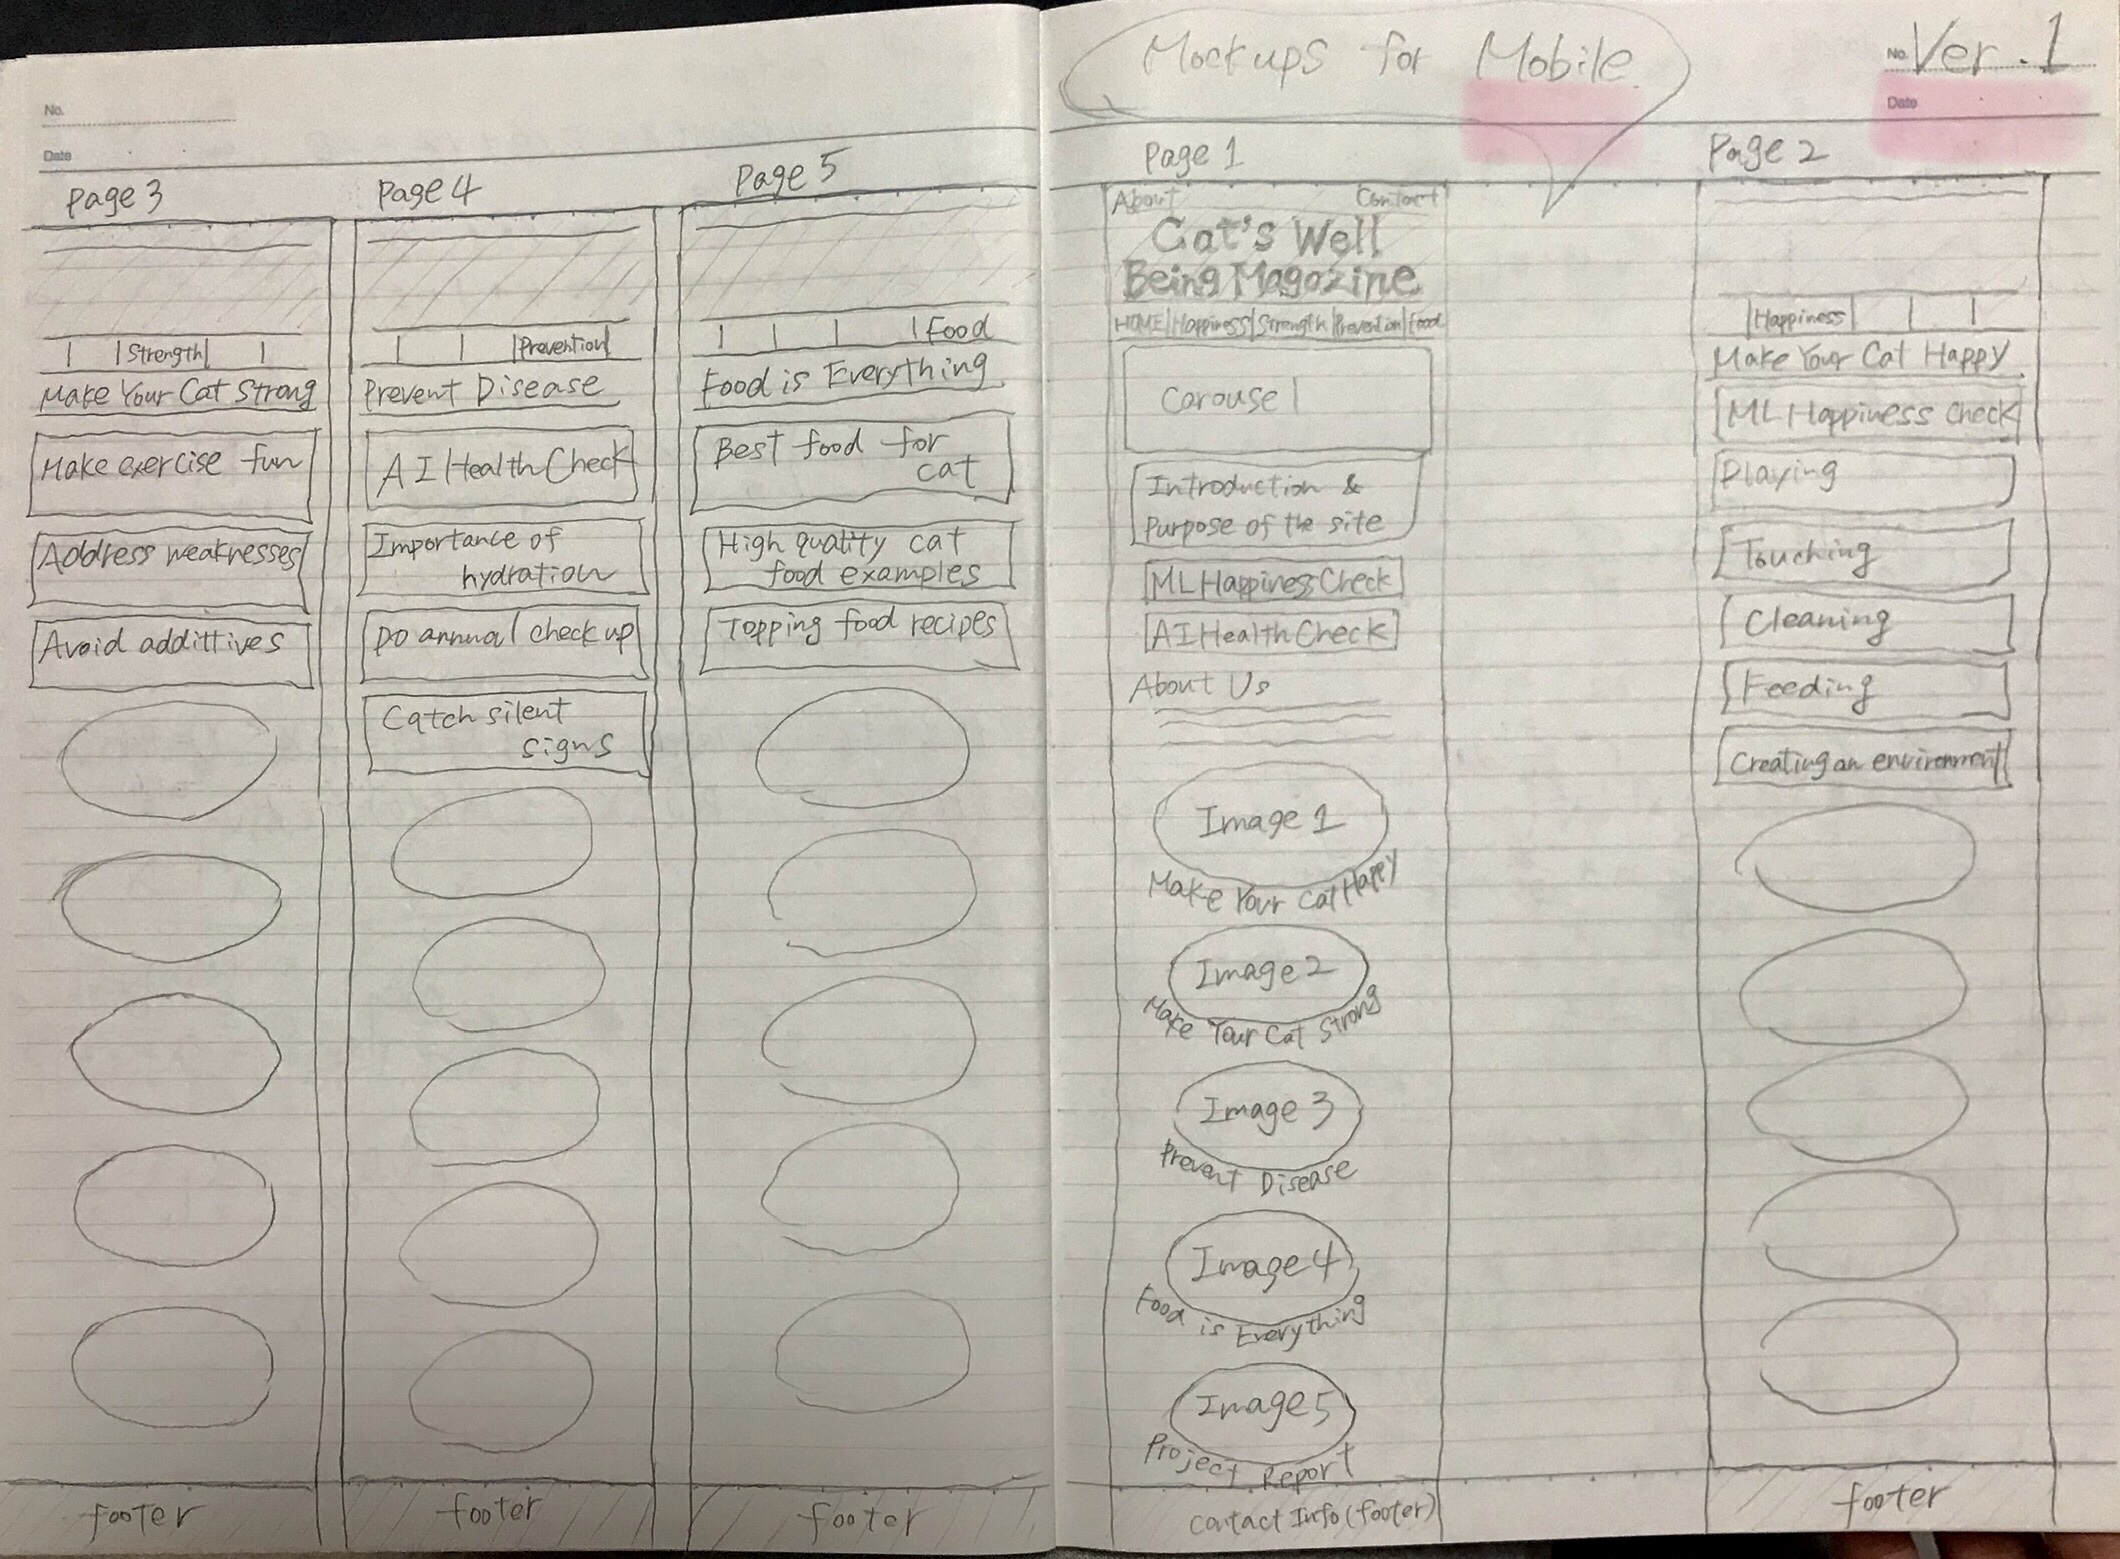 No.
Date
Page 3
Strength
Make Your Cat Strong
Make exercise fun
Address weaknesses
Avoid addittives
footer
Page 4
Prevention
Prevent Disease
AI Health Check
Importance of
hydration
Do annual check up
Catch silent
signs
footer
Page 5
Food
Food is Everything
Best food for
cat
High quality cat
food examples
Topping food recipes
footer
Mockups for Mobile
No. Ver. 1
Date
Page 1
About Contact
Cat's Well
Being Magazine
HOME Happiness Strength Prevention Food
Carousel
Introduction &
Purpose of the site
ML Happiness Check
AI Health Check
About Us
Image 1
Make Your Cat Happy
Image 2
Make Your Cat Strong
Image 3
Prevent Disease
Image 4
Food is Everything
Image 5
Project Report
Contact Info (footer)
Page 2
Happiness
Make Your Cat Happy
ML Happiness Check
Playing
Touching
Cleaning
Feeding
Creating an environment
footer